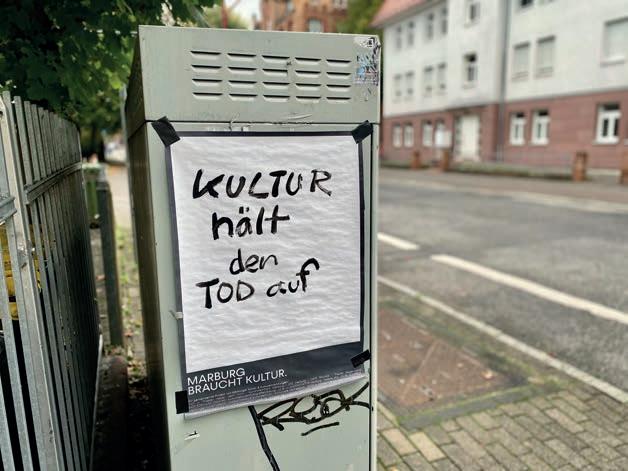 KULTUR
hält
den
TOD auf
MARBURG
BRAUCHT KULTUR.